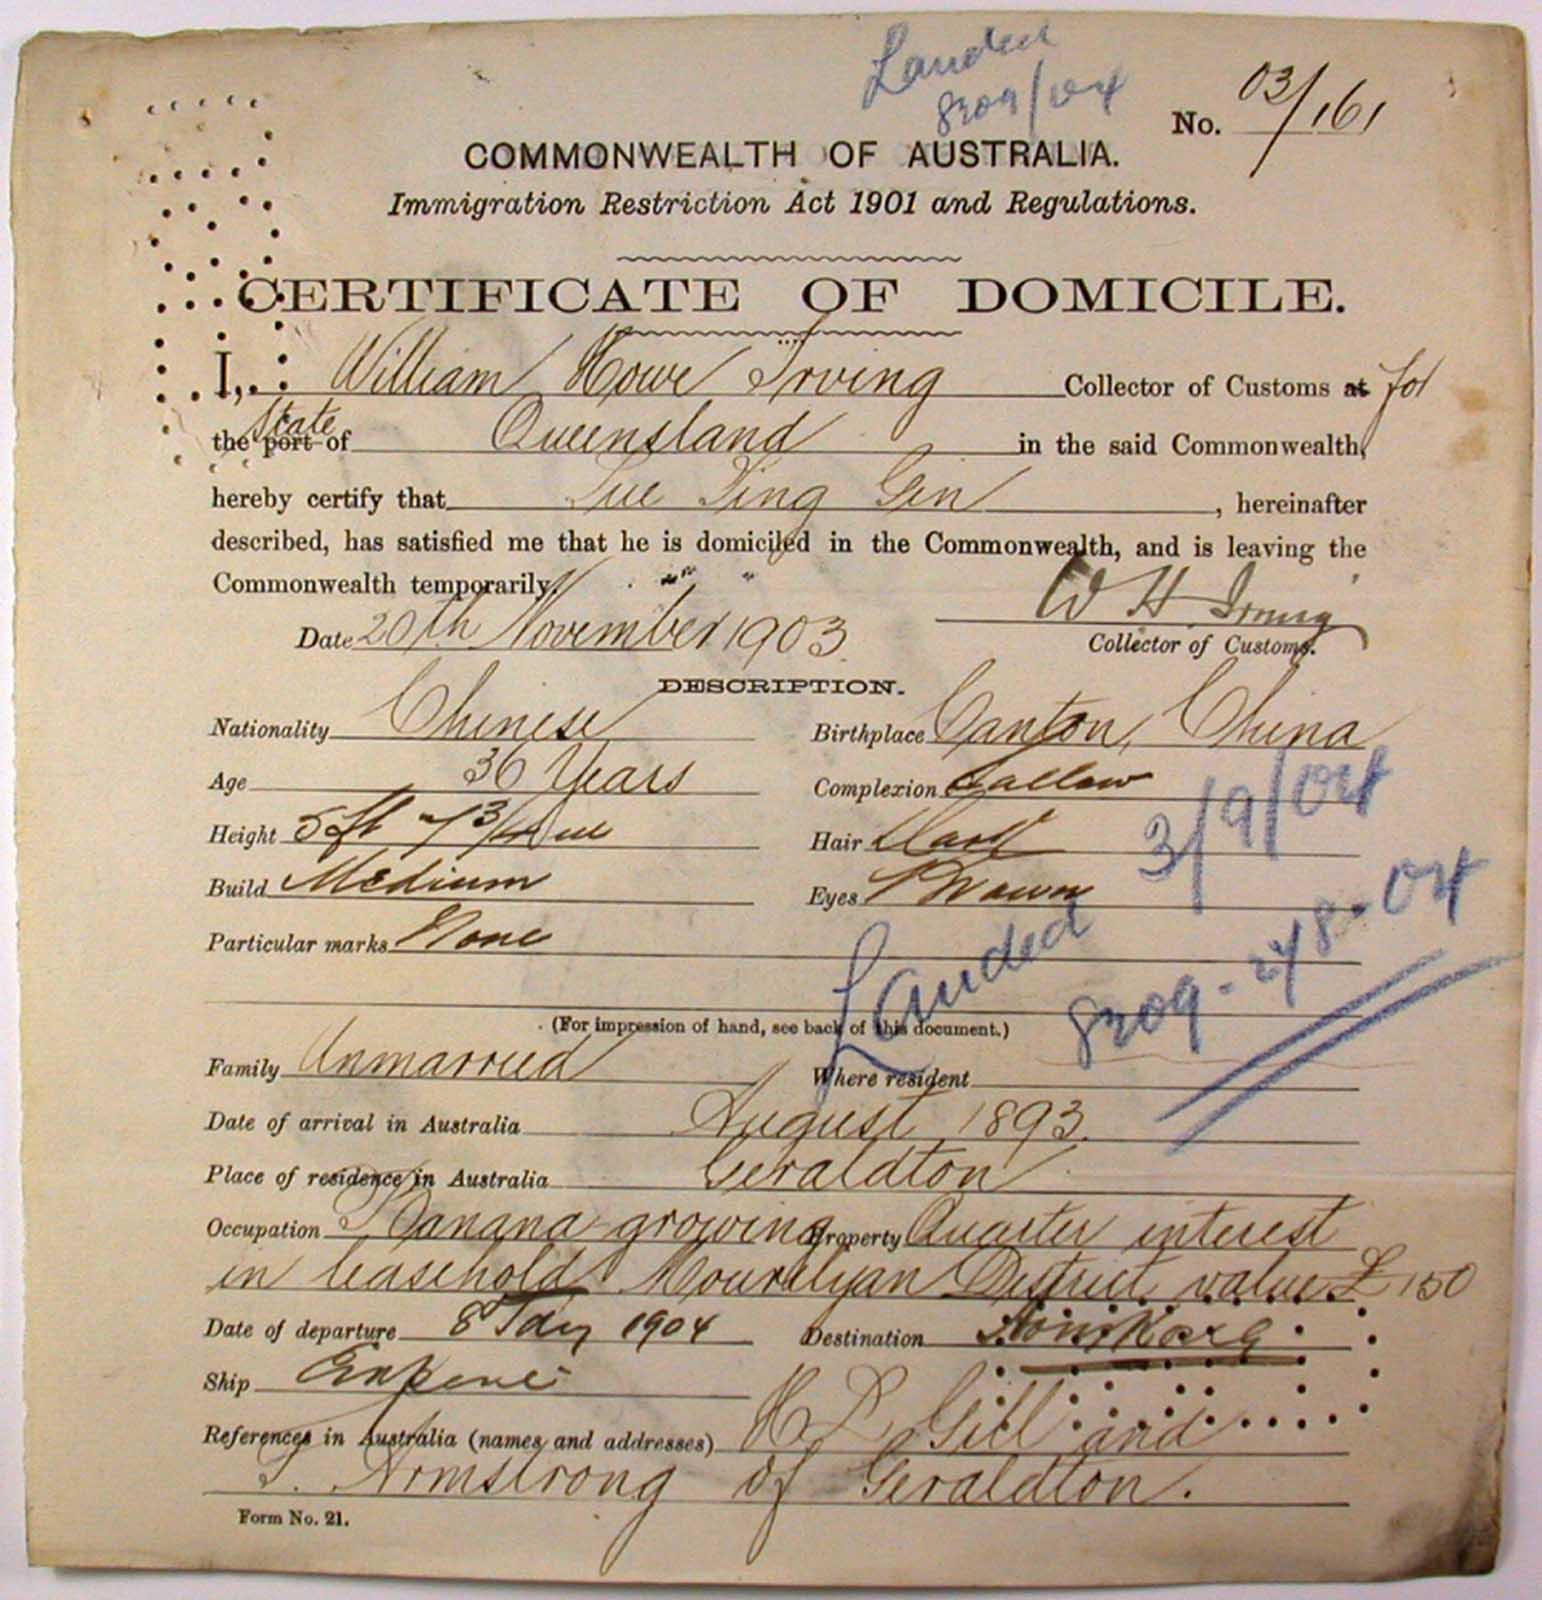 Landed
8209/04
No. 03/161
COMMONWEALTH OF AUSTRALIA.
Immigration Restriction Act 1901 and Regulations.
CERTIFICATE OF DOMICILE.
I, William Howe Irving Collector of Customs at for
the port State of Queensland in the said Commonwealth,
hereby certify that Sue Ting Gin, hereinafter
described, has satisfied me that he is domiciled in the Commonwealth, and is leaving the
Commonwealth temporarily.
W H Irving
Date 20th November 1903 Collector of Customs.
DESCRIPTION.
Nationality Chinese Birthplace Canton, China
Age 36 Years Complexion Sallow
Height 5ft 7 3/4 Hair Dark
3/9/04
Build Medium Eyes Brown
Particular marks None
Landed 8209-248-04
(For impression of hand, see back of this document.)
Family Unmarried Where resident
Date of arrival in Australia August 1893
Place of residence in Australia Geraldton
Occupation Banana growing Property Quarter interest
in leasehold Mourilyan District value £150
Date of departure 8 1904 Destination Hong Kong
Ship Empire
References in Australia (names and addresses) Gill and
T. Armstrong of Geraldton.
Form No. 21.